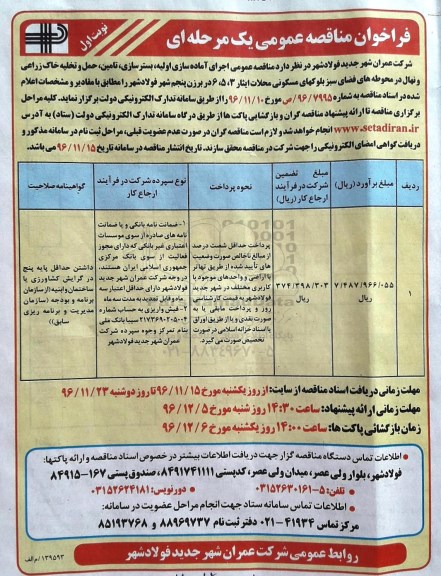 نوبت اول
فراخوان مناقصه عمومی یک مرحله ای
شرکت عمران شهر جدید فولادشهر در نظر دارد مناقصه عمومی اجرای آماده سازی اولیه، بستر سازی، تامین، حمل و تخلیه خاک زراعی
و نهال در محوطه های فضای سبز بلوکهای مسکونی محلات ایثار ۳، ۵، ۶ در برزن پنجم شهر فولادشهر را مطابق با مقادیر و مشخصات اعلام
شده در اسناد مناقصه به شماره ۹۶/۷۹۹۵/ص مورخ ۹۶/۱۱/۱۰ را از طریق سامانه تدارک الکترونیکی دولت برگزار نماید. کلیه مراحل
برگزاری مناقصه تا ارائه پیشنهاد مناقصه گران و بازگشایی پاکت ها از طریق درگاه سامانه تدارک الکترونیکی دولت (ستاد) به آدرس
www.setadiran.ir انجام خواهد شد و لازم است مناقصه گران در صورت عدم عضویت قبلی، مراحل ثبت نام در سامانه مذکور و
دریافت گواهی امضای الکترونیکی را جهت شرکت در مناقصه محقق سازند. تاریخ انتشار مناقصه در سامانه تاریخ ۹۶/۱۱/۱۵ می باشد.
ردیف
مبلغ برآورد (ریال)
مبلغ تضمین
شرکت در فرآیند
ارجاع کار (ریال)
نحوه پرداخت
نوع سپرده شرکت در فرآیند
ارجاع کار
گواهینامه صلاحیت
۱
۷/۴۸۷/۹۶۶/۰۵۵
ریال
۳۷۴/۳۹۸/۳۰۳
ریال
پرداخت حداقل شصت درصد
از مبالغ ناخالص صورت وضعیت
های تأیید شده از طریق تهاتر
با اراضی و واحدهای موجود با
کاربری مختلف در شهر جدید
فولادشهر به قیمت کارشناسی
روز و پرداخت مابقی یا به
صورت نقدی و یا از طریق اوراق
یا اسناد خزانه اسلامی در صورت
تخصیص صورت می گیرد.
۱- ضمانت نامه بانکی و یا ضمانت
نامه های صادره از سوی موسسات
اعتباری غیر بانکی که دارای مجوز
فعالیت از سوی بانک مرکزی
جمهوری اسلامی ایران هستند،
در وجه شرکت عمران شهر جدید
فولادشهر دارای حداقل اعتبار سه
ماه و قابل تمدید به مدت سه ماه
۲- فیش واریزی به حساب شماره
۲۱۷۳۶۹۰۲۰۵۰۰۴ سیبا بانک ملی
بنام تمرکز وجوه سپرده شرکت
عمران شهر جدید فولادشهر
داشتن حداقل پایه پنج
در گرایش کشاورزی یا
ساختمان وابنیه (از سازمان
برنامه و بودجه (سازمان
مدیریت و برنامه ریزی
سابق))
مهلت زمانی دریافت اسناد مناقصه از سایت: از روز یکشنبه مورخ ۹۶/۱۱/۱۵ تا روز دوشنبه ۹۶/۱۱/۲۳
مهلت زمانی ارائه پیشنهاد: ساعت ۱۴:۳۰ روز شنبه مورخ ۹۶/۱۲/۵
زمان بازگشائی پاکت ها: ساعت ۱۴:۰۰ روز یکشنبه مورخ ۹۶/۱۲/۶
اطلاعات تماس دستگاه مناقصه گزار جهت دریافت اطلاعات بیشتر در خصوص اسناد مناقصه و ارائه پاکتها:
فولادشهر، بلوار ولی عصر، میدان ولی عصر، کدپستی ۸۴۹۱۷۴۱۱۱۱، صندوق پستی ۱۶۷-۸۴۹۱۵
تلفن: ۵-۰۳۱۵۲۶۳۰۱۶۱ دورنویس: ۰۳۱۵۲۶۲۴۱۸۱
اطلاعات تماس سامانه ستاد جهت انجام مراحل عضویت در سامانه:
مرکز تماس ۴۱۹۳۴-۰۲۱ دفتر ثبت نام ۸۸۹۶۹۷۳۷ و ۸۵۱۹۳۷۶۸
روابط عمومی شرکت عمران شهر جدید فولادشهر
۱۳۹۵۹۳/م الف